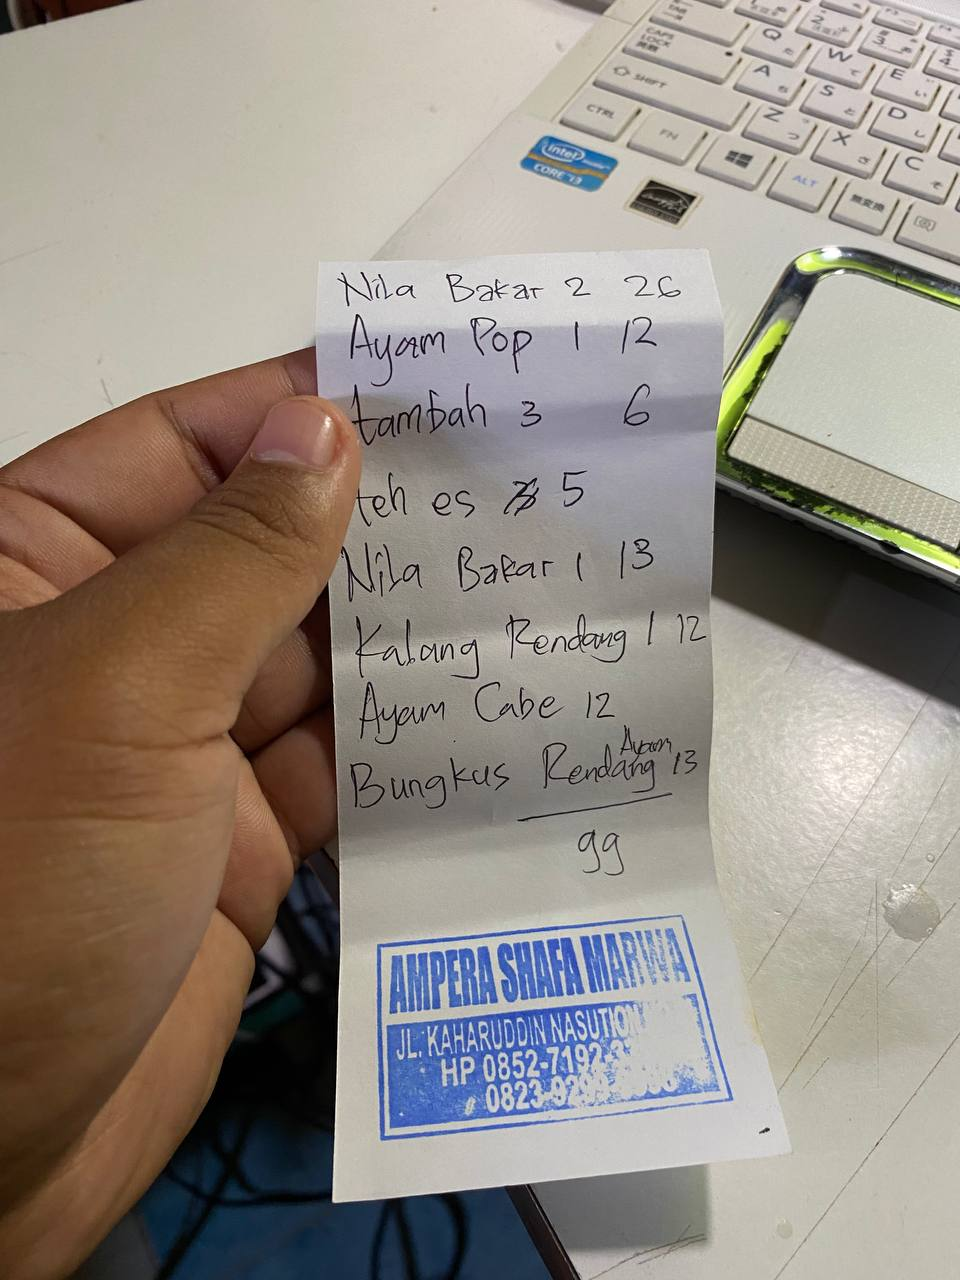 Nila Bakar 2 26
Ayam Pop 1 12
tambah 3 6
teh es 5
Nila Bakar 1 13
Kalang Rendang 1 12
Ayam Cabe 12
Ayam
Bungkus Rendang 13
99
AMPERA SHAFA MARWA
JL. KAHARUDDIN NASUTION
HP 0852-7192-3
0823-92
intel
CORE i3
CAPS LOCK
英数
SHIFT
CTRL
FN
ALT
無変換
Q た
W て
E い
A ち
S と
D し
Z つ
X さ
C そ